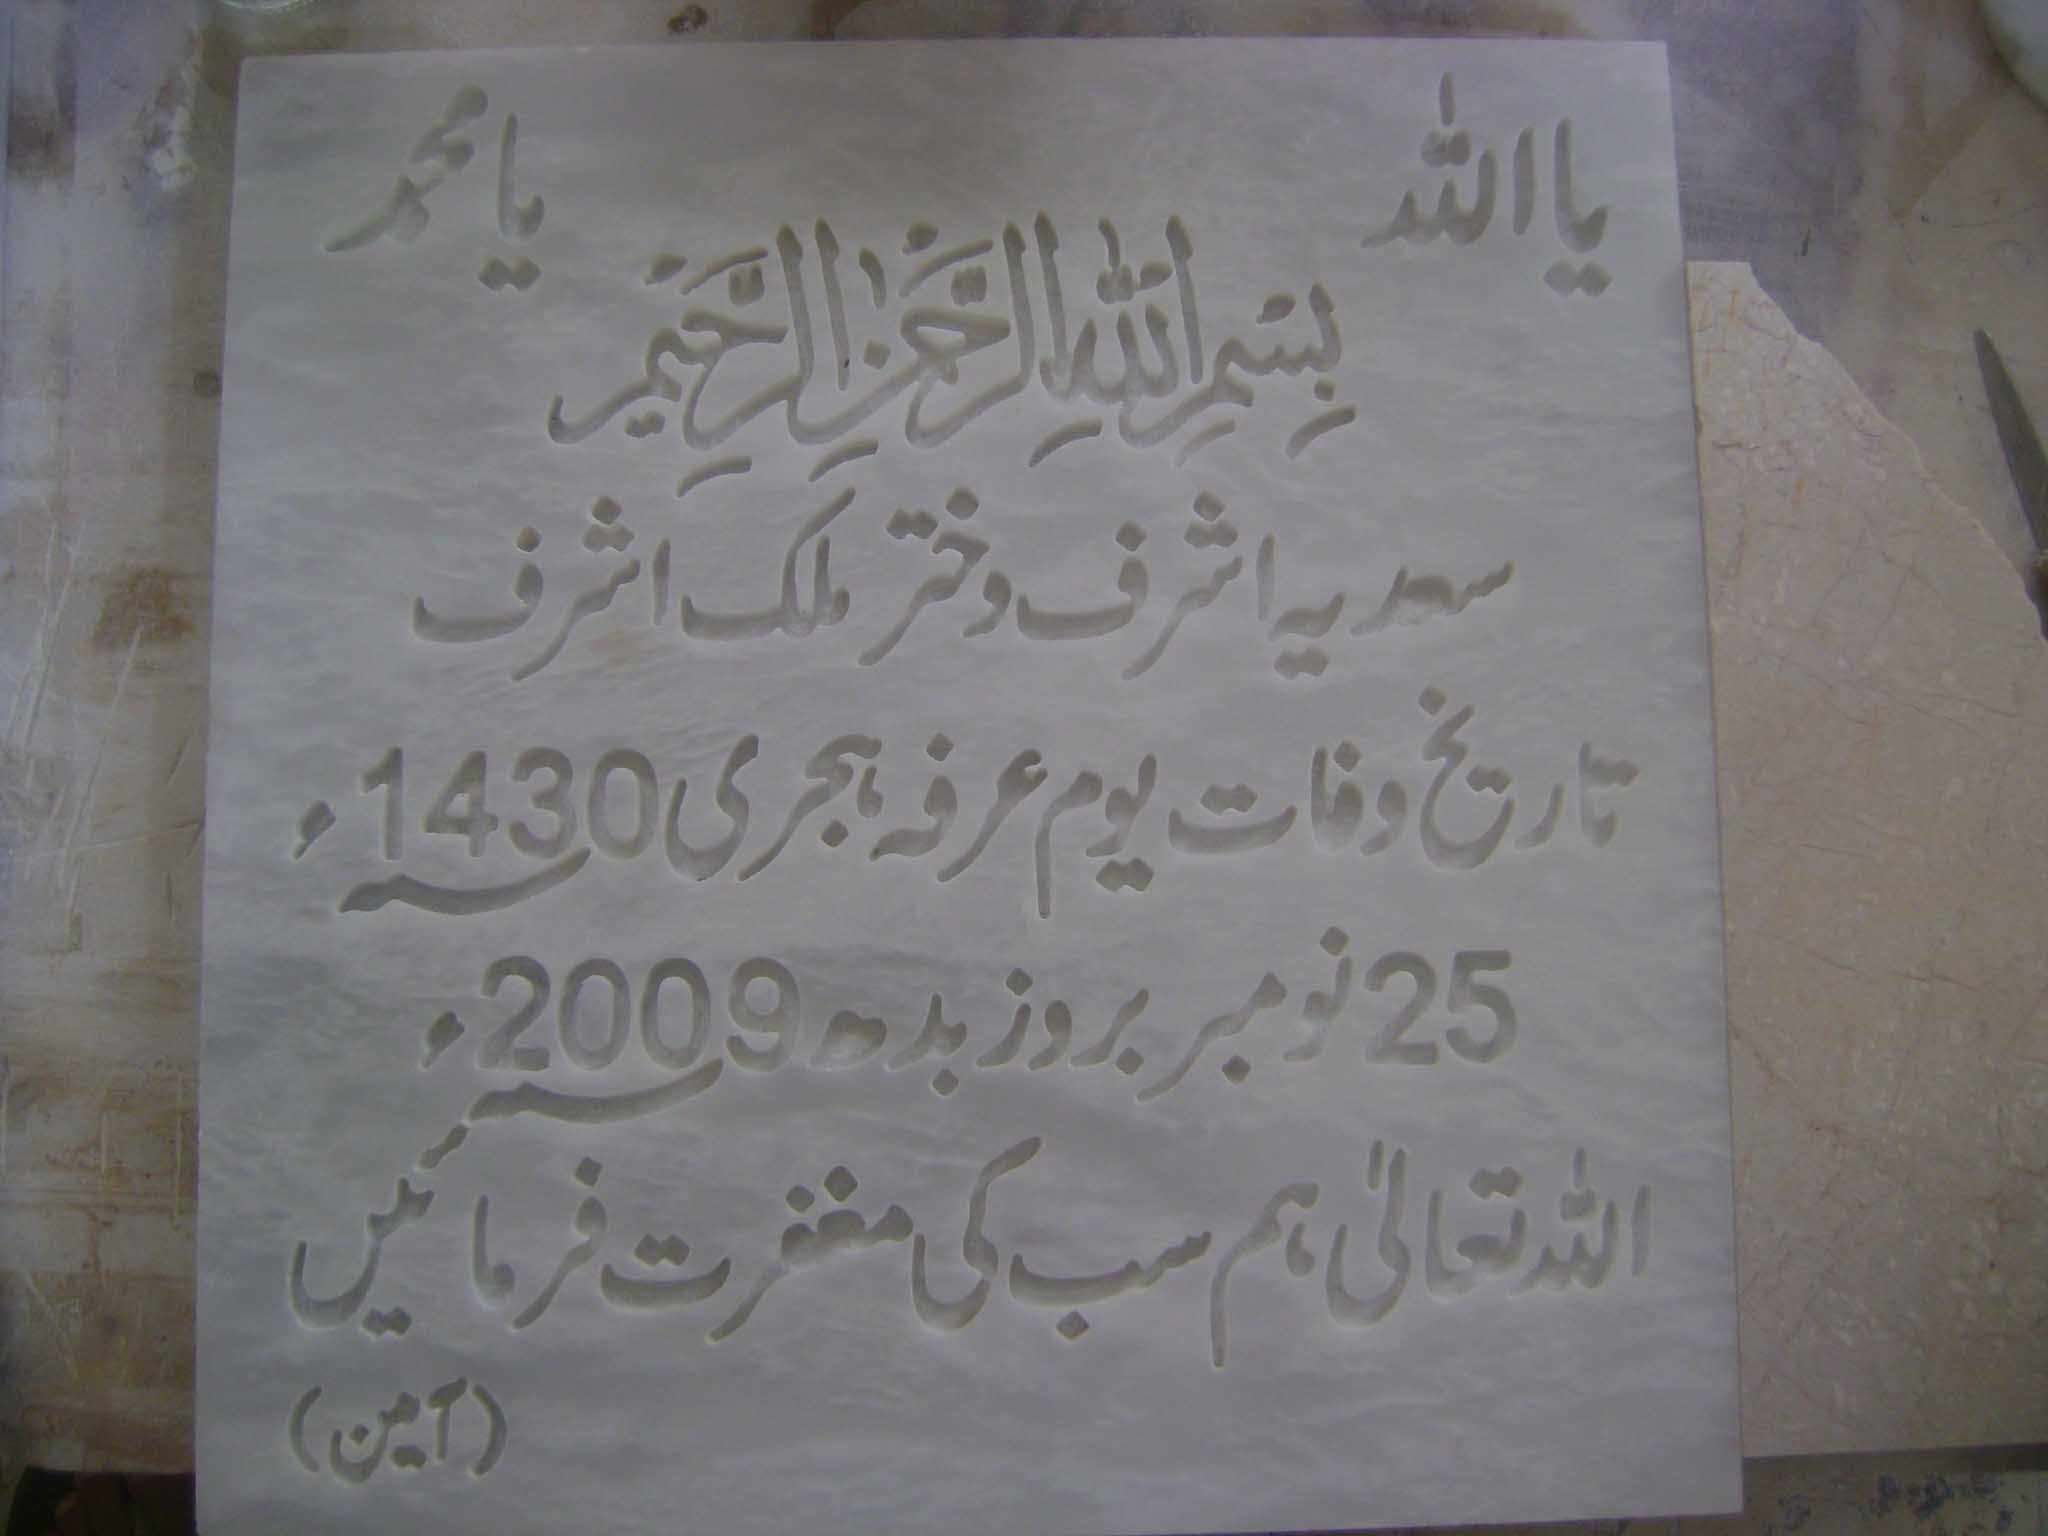 یا اللہ یا محمد
بِسْمِ اللّٰهِ الرَّحْمٰنِ الرَّحِيْمِ
سعدیہ اشرف دختر ملک اشرف
تاریخ وفات یوم عرفہ ہجری 1430ء
25 نومبر بروز بدھ 2009ء
اللہ تعالیٰ ہم سب کی مغفرت فرمائیں
(آمین)